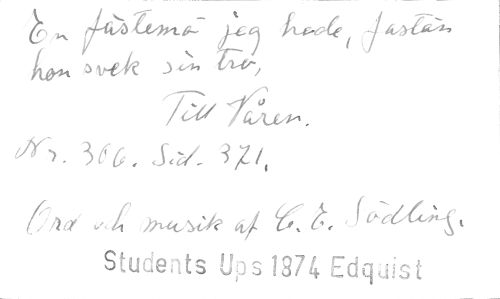 En fästemö jag hade, fastän
hon svek sin tro,
Till Våren.
Nr. 306. Sid. 371.
Ord och musik af C. E. Södling.
Students Ups 1874 Edquist